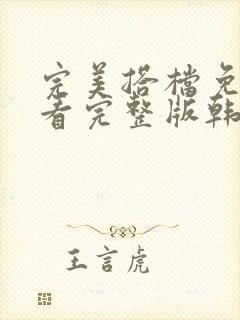 完美搭档免
看完整版韩
王言虎